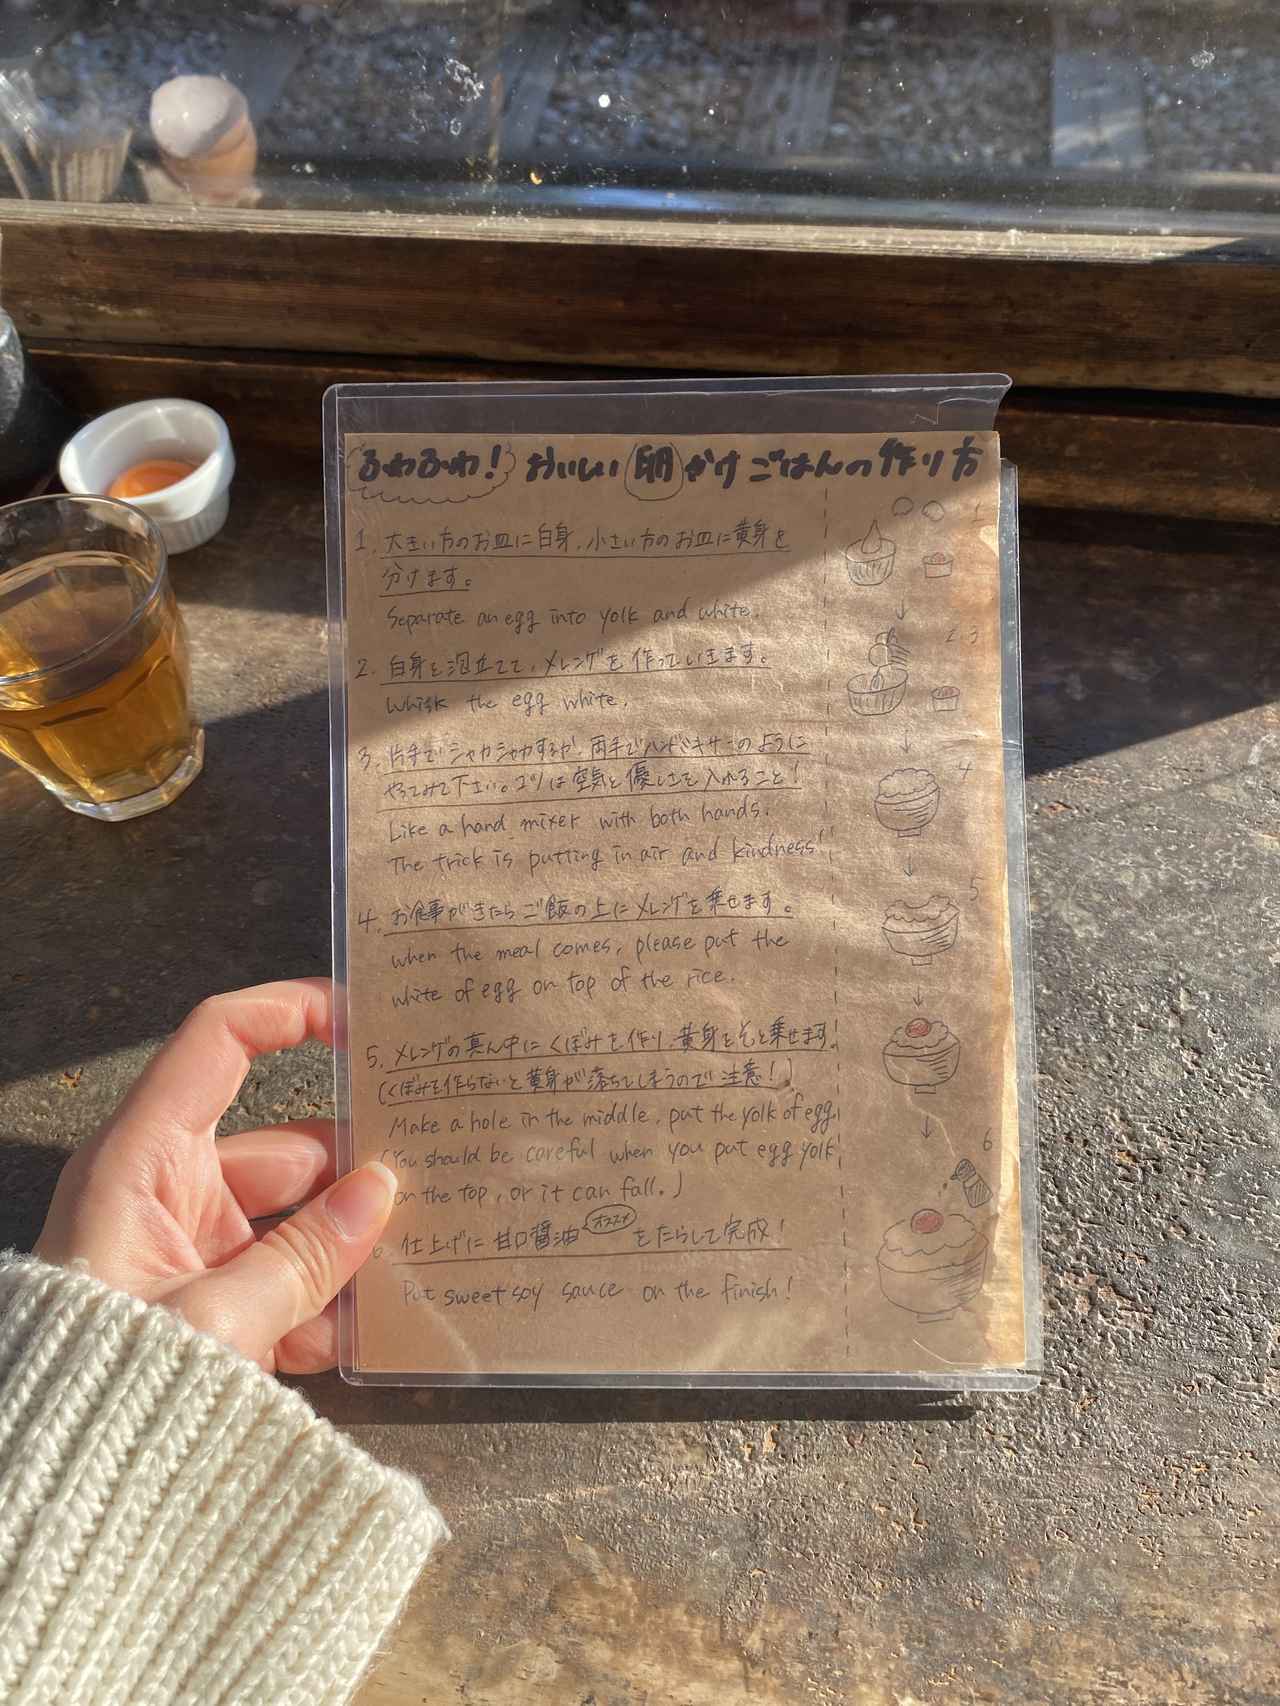 ふわふわ！おいしい卵かけごはんの作り方
1. 大きい方のお皿に白身、小さい方のお皿に黄身を
分けます。
Separate an egg into yolk and white.
2. 白身を泡立てて、メレンゲを作っていきます。
Whisk the egg white.
3. 片手でシャカシャカするか、両手でハンドミキサーのように
やってみて下さい。コツは空気と優しさを入れること！
Like a hand mixer with both hands.
The trick is putting in air and kindness!
4. お食事がきたらご飯の上にメレンゲを乗せます。
when the meal comes, please put the
white of egg on top of the rice.
5. メレンゲの真ん中にくぼみを作り、黄身をそっと乗せます。
(くぼみを作らないと黄身が落ちてしまうので注意！)
Make a hole in the middle, put the yolk of egg.
(You should be careful when you put egg yolk
on the top, or it can fall.)
6. 仕上げに甘口醤油オススメをたらして完成！
Put sweet soy sauce on the finish!
1
2 3
4
5
6